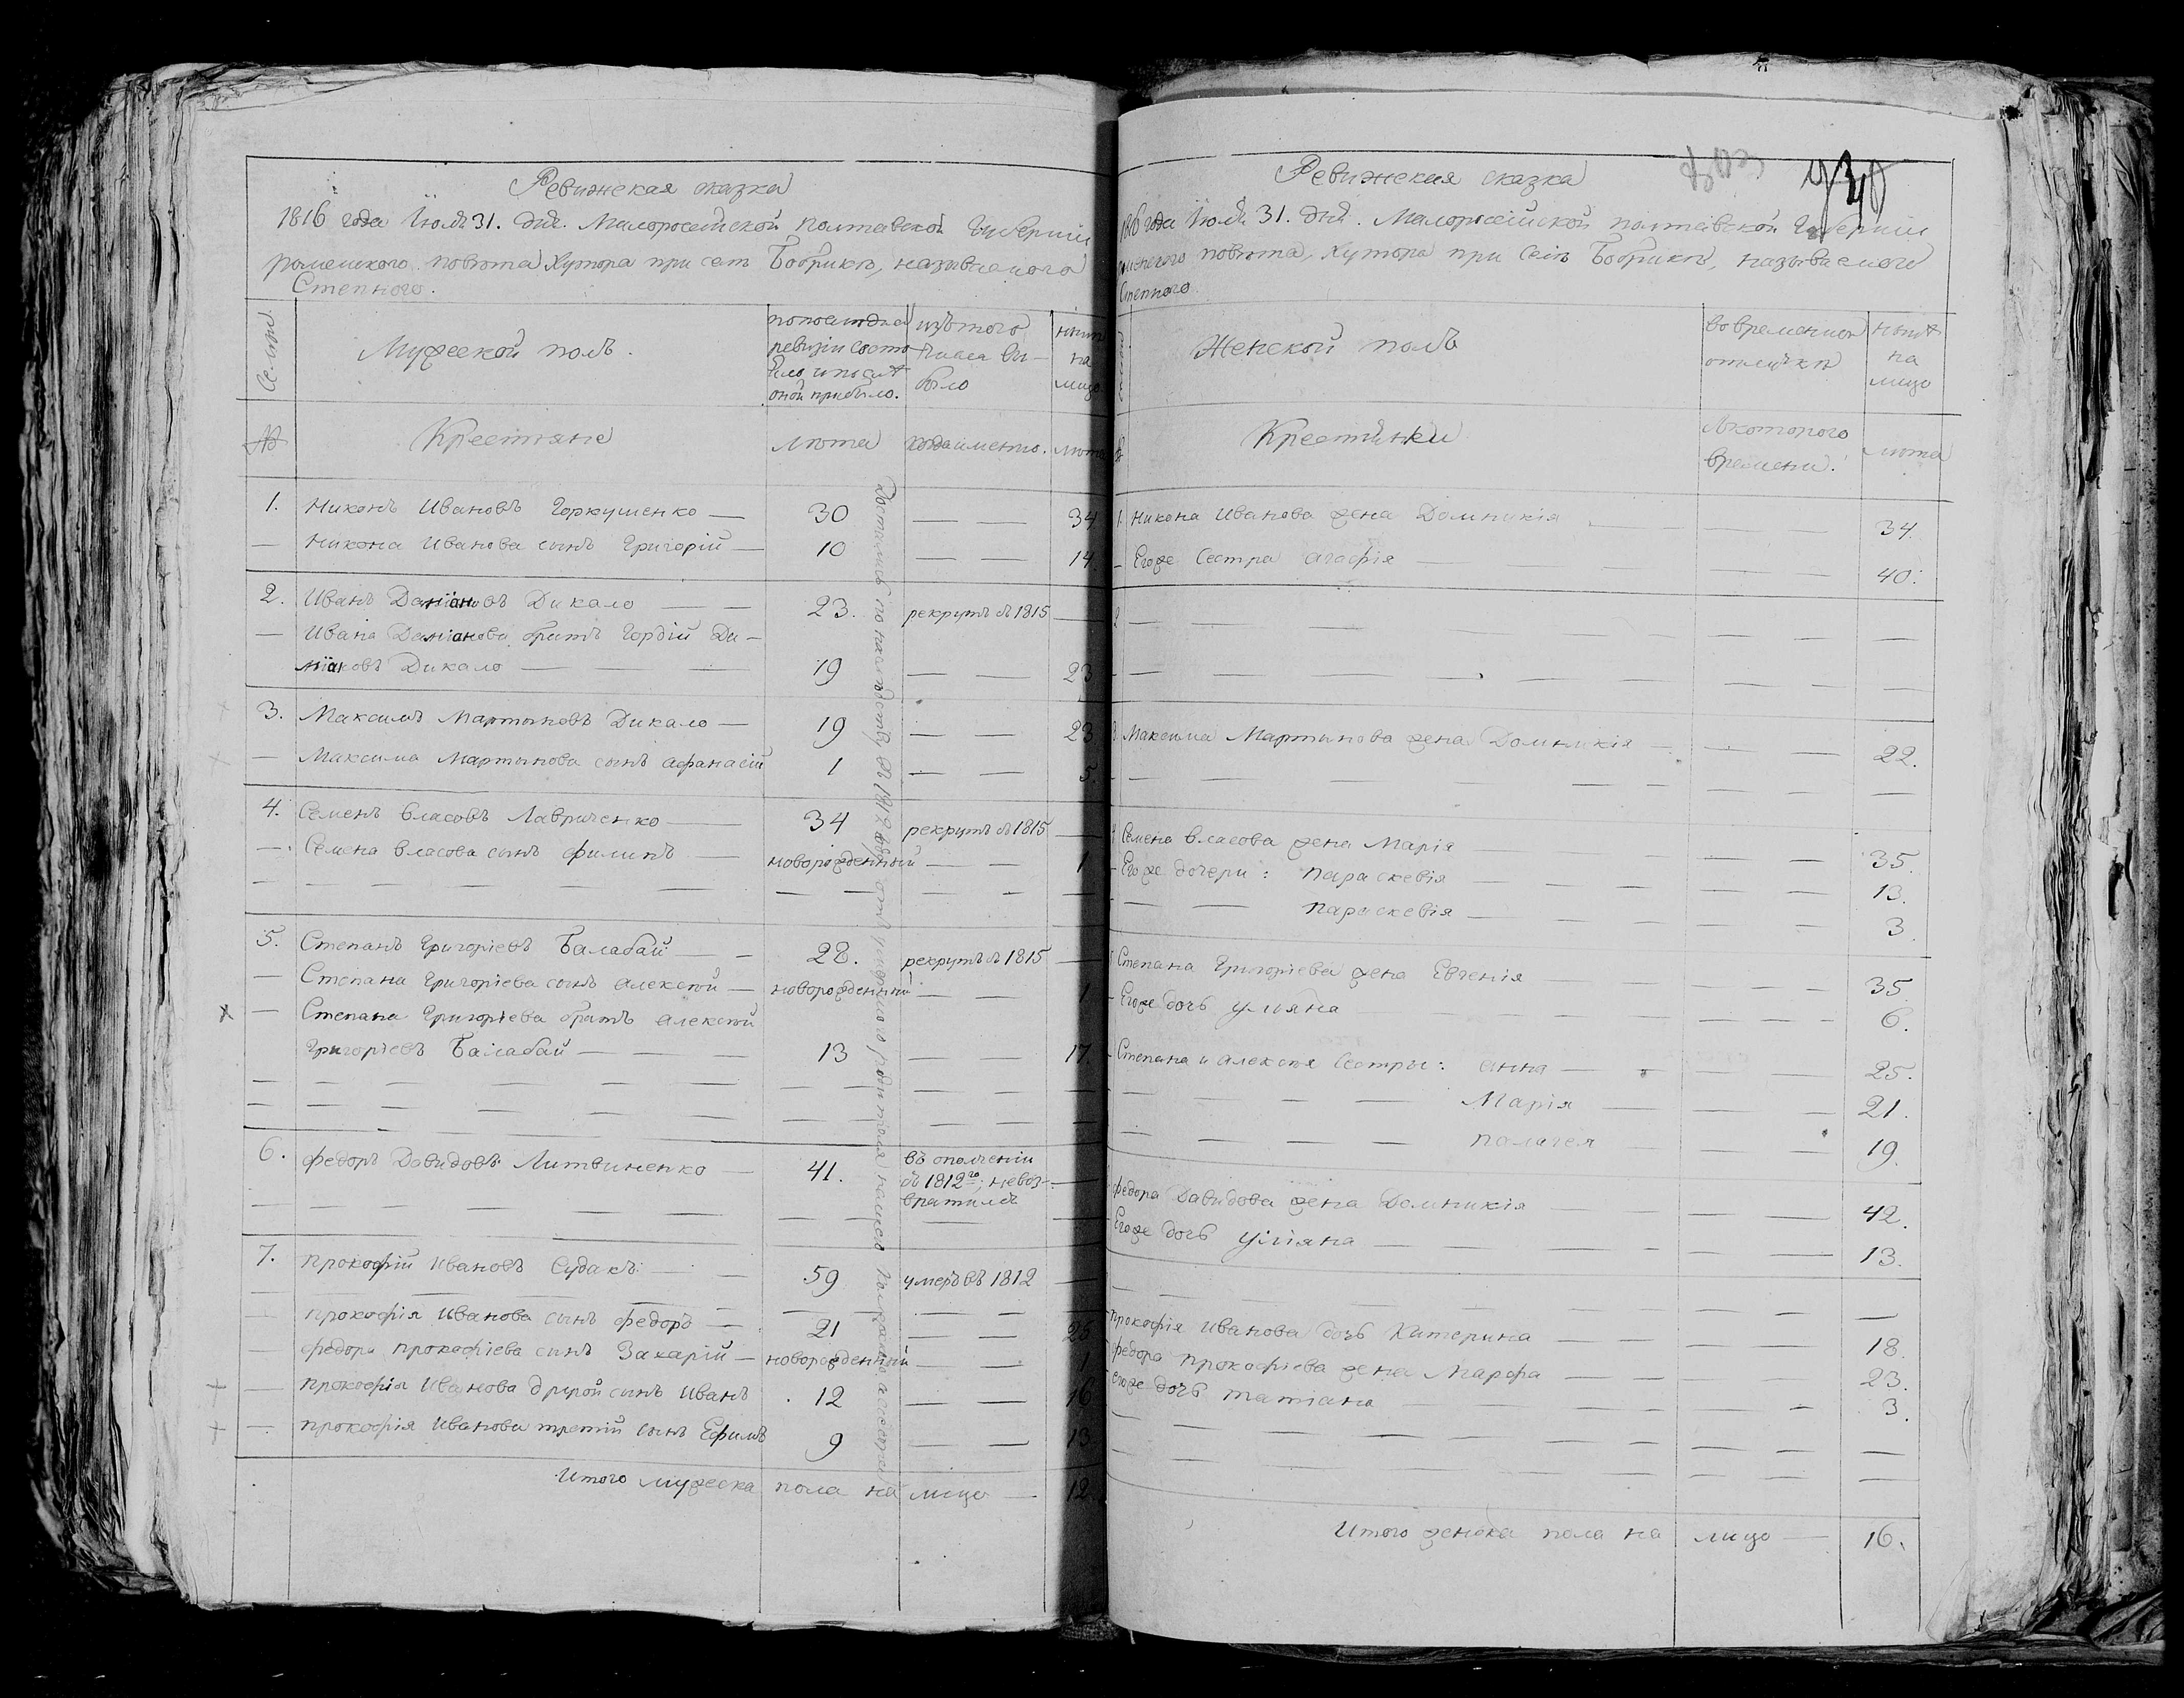 Ревижская сказка
1816 года Іюля 31. дня. Малоросейской полтавской Губерніи
роменского повѣта Хутора при селѣ Бобрикѣ, називаемого
Степного.
Семьи.
Мужеской полъ.
по последней
ревизіи состо-
яло и послѣ
оной прибыло.
изъ того
числа вы-
было
нынѣ
на
лицо
№
Крестяне
лѣта
когда именно.
лѣта
1. Никонъ Ивановъ Горкушенко — 30 — — 34
— Никона Иванова сынъ Григорій — 10 — — 14.
2. Иванъ Даміановъ Дикало — — 23. рекрутъ въ 1815 —
— Ивана Даміанова братъ Гордій Да-
міановъ Дикало — — — 19 — — 23
3. Максимъ Мартыновъ Дикало — 19 — — 23
— Максима Мартынова сынъ афанасій 1 — — 5.
4. Семенъ власовъ Лавриченко — 34 рекрутъ въ 1815 —
— Семена власова сынъ филипъ — новорожденный — — 1
5. Степанъ Григоріевъ Балабай — — 28. рекрутъ въ 1815 —
— Степана Григоріева сынъ алексѣй — новорожденный — — 1
х — Степана Григоріева братъ алексѣй
Григоріевъ Балабай — — — 13 — — 17.
6. федоръ Давидовъ Литвиненко — 41. въ ополченіи
съ 1812го, невоз- —
вратился
7. прокофій Ивановъ Судакъ — — 59 умеръ въ 1812 —
— прокофія Иванова сынъ федоръ — 21 — — 25
— федора прокофіева сынъ Захарій — новорожденный — — 1
+ — прокофія Иванова другой сынъ Иванъ 12 — — 16
+ — прокофія Иванова третій сынъ Ефимъ 9 — — 13
Итого мужеска пола на лицо — 12.
Достались по наслѣдству въ 1812 году отъ родителя
Ревижская сказка
430
1816 года Іюля 31. дня. Малоросейской полтавской Губерніи
роменского повѣта, Хутора при селѣ Бобрикѣ, називаемого
Степного
Женской полъ
во временной
отлучкѣ
нынѣ
на
лицо
Крестянки
Съ которого
времени.
лѣта
1. Никона Иванова жена Домникія — — — 34.
— Егоже Сестра агафія — — — 40.
2 — — — —
3 Максима Мартынова жена Домникія — — — 22.
4 Семена власова жена Марія — — — 35.
— Егоже дочери: параскевія — — — 13.
— — параскевія — — — 3.
5 Степана Григоріева жена Евгенія — — — 35.
— Егоже дочь уліяна — — — 6.
Степана и алексѣя Сестры: анна — — — 25.
— — — — Марія — — — 21.
— — — — палагея — — — 19.
федора Давидова жена Домникія — — — 42.
Егоже дочь уліяна — — — 13.
прокофія Иванова дочь Катерина — — — 18.
федора прокофіева жена Марфа — — — 23.
Егоже дочь татіана — — — 3.
Итого женска пола на лицо — 16.